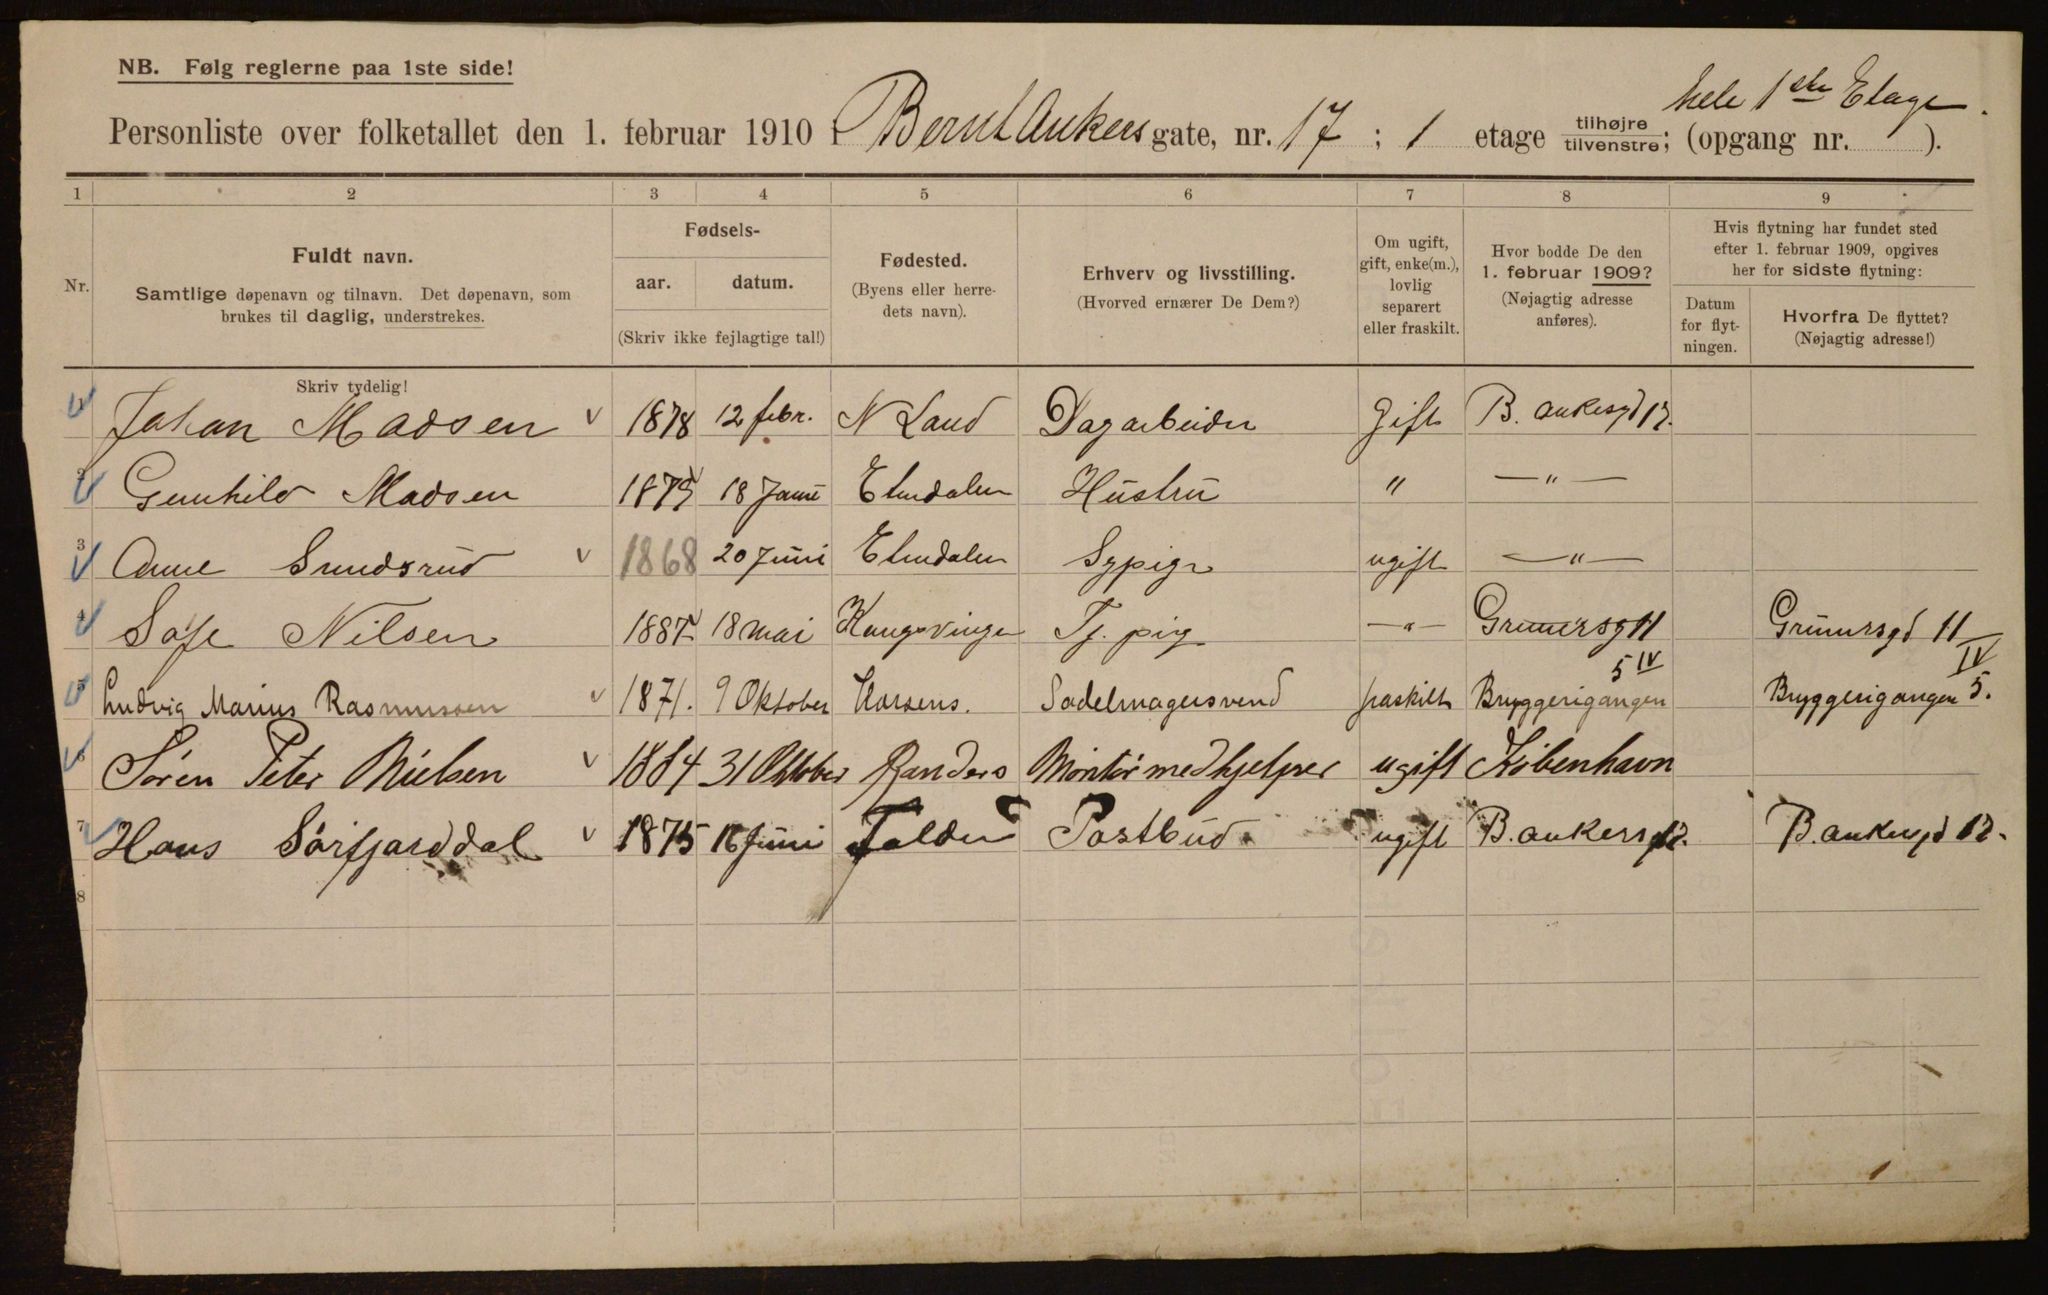 NB. Følg reglerne paa 1ste side!
hele 1ste Etage.
Personliste over folketallet den 1. februar 1910 i Bernt Ankers gate, nr. 17 ; 1 etage tilhøjre/tilvenstre; (opgang nr. ).
1 2 3 4 5 6 7 8 9
Nr.
Fuldt navn.
Samtlige døpenavn og tilnavn. Det døpenavn, som
brukes til daglig, understrekes.
Fødsels-
aar. datum.
(Skriv ikke fejlagtige tal!)
Fødested.
(Byens eller herre-
dets navn).
Erhverv og livsstilling.
(Hvorved ernærer De Dem?)
Om ugift,
gift, enke(m.),
lovlig
separert
eller fraskilt.
Hvor bodde De den
1. februar 1909?
(Nøjagtig adresse
anføres).
Hvis flytning har fundet sted
efter 1. februar 1909, opgives
her for sidste flytning:
Datum
for flyt-
ningen.
Hvorfra De flyttet?
(Nøjagtig adresse!)
Skriv tydelig!
1 Johan Madsen 1878 12 febr. N Land Dagarbeider Gift B. ankersgd 17.
2 Gunhild Madsen 1875 18 Etnedalen Hustru " —"—
3 Anne Sundsrud 1868 20 Juni Etnedalen Sypige ugift —"—
4 Sofe Nilsen 1887 18 mai Kongsvinger Tj. pig —"— Grunersg 11 Grunersgd 11
5 IV IV
5 Ludvig Marius Rasmussen 1871. 9 Oktober Horsens. Sadelmagersvend fraskilt Bryggerigangen Bryggerigangen 5.
6 Søren Peter Nielsen 1884 31 Oktober Randers Montør medhjelper ugift København
7 Hans Sørfjorddal 1875 16 Juni Folden Postbud ugift B. ankersg 17. B. ankersgd 17.
8